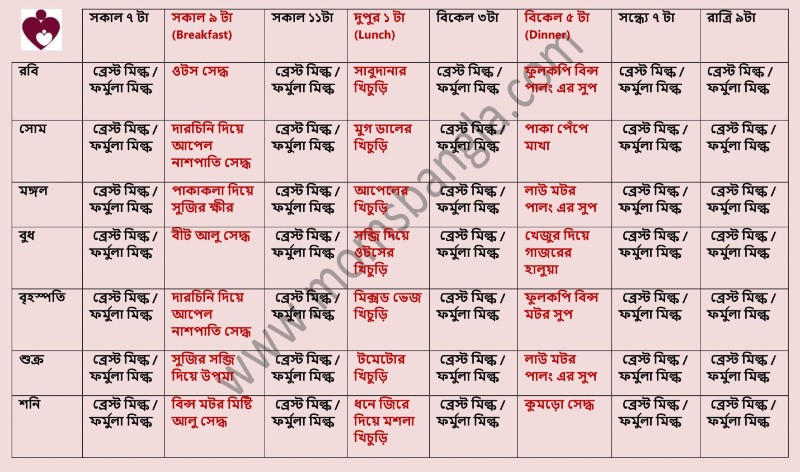 সকাল ৭ টা সকাল ৯ টা সকাল ১১টা দুপুর ১ টা বিকেল ৩টা বিকেল ৫ টা সন্ধ্যে ৭ টা রাত্রি ৯টা
(Breakfast) (Lunch) (Dinner)
রবি ব্রেস্ট মিল্ক / ওটস সেদ্ধ ব্রেস্ট মিল্ক / সাবুদানার ব্রেস্ট মিল্ক / ফুলকপি বিন্স ব্রেস্ট মিল্ক / ব্রেস্ট মিল্ক /
ফর্মুলা মিল্ক ফর্মুলা মিল্ক খিচুড়ি ফর্মুলা মিল্ক পালং এর সুপ ফর্মুলা মিল্ক ফর্মুলা মিল্ক
সোম ব্রেস্ট মিল্ক / দারচিনি দিয়ে ব্রেস্ট মিল্ক / মুগ ডালের ব্রেস্ট মিল্ক / পাকা পেঁপে ব্রেস্ট মিল্ক / ব্রেস্ট মিল্ক /
ফর্মুলা মিল্ক আপেল ফর্মুলা মিল্ক খিচুড়ি ফর্মুলা মিল্ক মাখা ফর্মুলা মিল্ক ফর্মুলা মিল্ক
নাশপাতি সেদ্ধ
মঙ্গল ব্রেস্ট মিল্ক / পাকাকলা দিয়ে ব্রেস্ট মিল্ক / আপেলের ব্রেস্ট মিল্ক / লাউ মটর ব্রেস্ট মিল্ক / ব্রেস্ট মিল্ক /
ফর্মুলা মিল্ক সুজির ক্ষীর ফর্মুলা মিল্ক খিচুড়ি ফর্মুলা মিল্ক পালং এর সুপ ফর্মুলা মিল্ক ফর্মুলা মিল্ক
বুধ ব্রেস্ট মিল্ক / বীট আলু সেদ্ধ ব্রেস্ট মিল্ক / সব্জি দিয়ে ব্রেস্ট মিল্ক / খেজুর দিয়ে ব্রেস্ট মিল্ক / ব্রেস্ট মিল্ক /
ফর্মুলা মিল্ক ফর্মুলা মিল্ক ওটসের ফর্মুলা মিল্ক গাজরের ফর্মুলা মিল্ক ফর্মুলা মিল্ক
খিচুড়ি হালুয়া
বৃহস্পতি ব্রেস্ট মিল্ক / দারচিনি দিয়ে ব্রেস্ট মিল্ক / মিক্সড ভেজ ব্রেস্ট মিল্ক / ফুলকপি বিন্স ব্রেস্ট মিল্ক / ব্রেস্ট মিল্ক /
ফর্মুলা মিল্ক আপেল ফর্মুলা মিল্ক খিচুড়ি ফর্মুলা মিল্ক মটর সুপ ফর্মুলা মিল্ক ফর্মুলা মিল্ক
নাশপাতি সেদ্ধ
শুক্র ব্রেস্ট মিল্ক / সুজির সব্জি ব্রেস্ট মিল্ক / টমেটোর ব্রেস্ট মিল্ক / লাউ মটর ব্রেস্ট মিল্ক / ব্রেস্ট মিল্ক /
ফর্মুলা মিল্ক দিয়ে উপমা ফর্মুলা মিল্ক খিচুড়ি ফর্মুলা মিল্ক পালং এর সুপ ফর্মুলা মিল্ক ফর্মুলা মিল্ক
শনি ব্রেস্ট মিল্ক / বিন্স মটর মিষ্টি ব্রেস্ট মিল্ক / ধনে জিরে ব্রেস্ট মিল্ক / কুমড়ো সেদ্ধ ব্রেস্ট মিল্ক / ব্রেস্ট মিল্ক /
ফর্মুলা মিল্ক আলু সেদ্ধ ফর্মুলা মিল্ক দিয়ে মশলা ফর্মুলা মিল্ক ফর্মুলা মিল্ক ফর্মুলা মিল্ক
খিচুড়ি
www.momsbangla.com